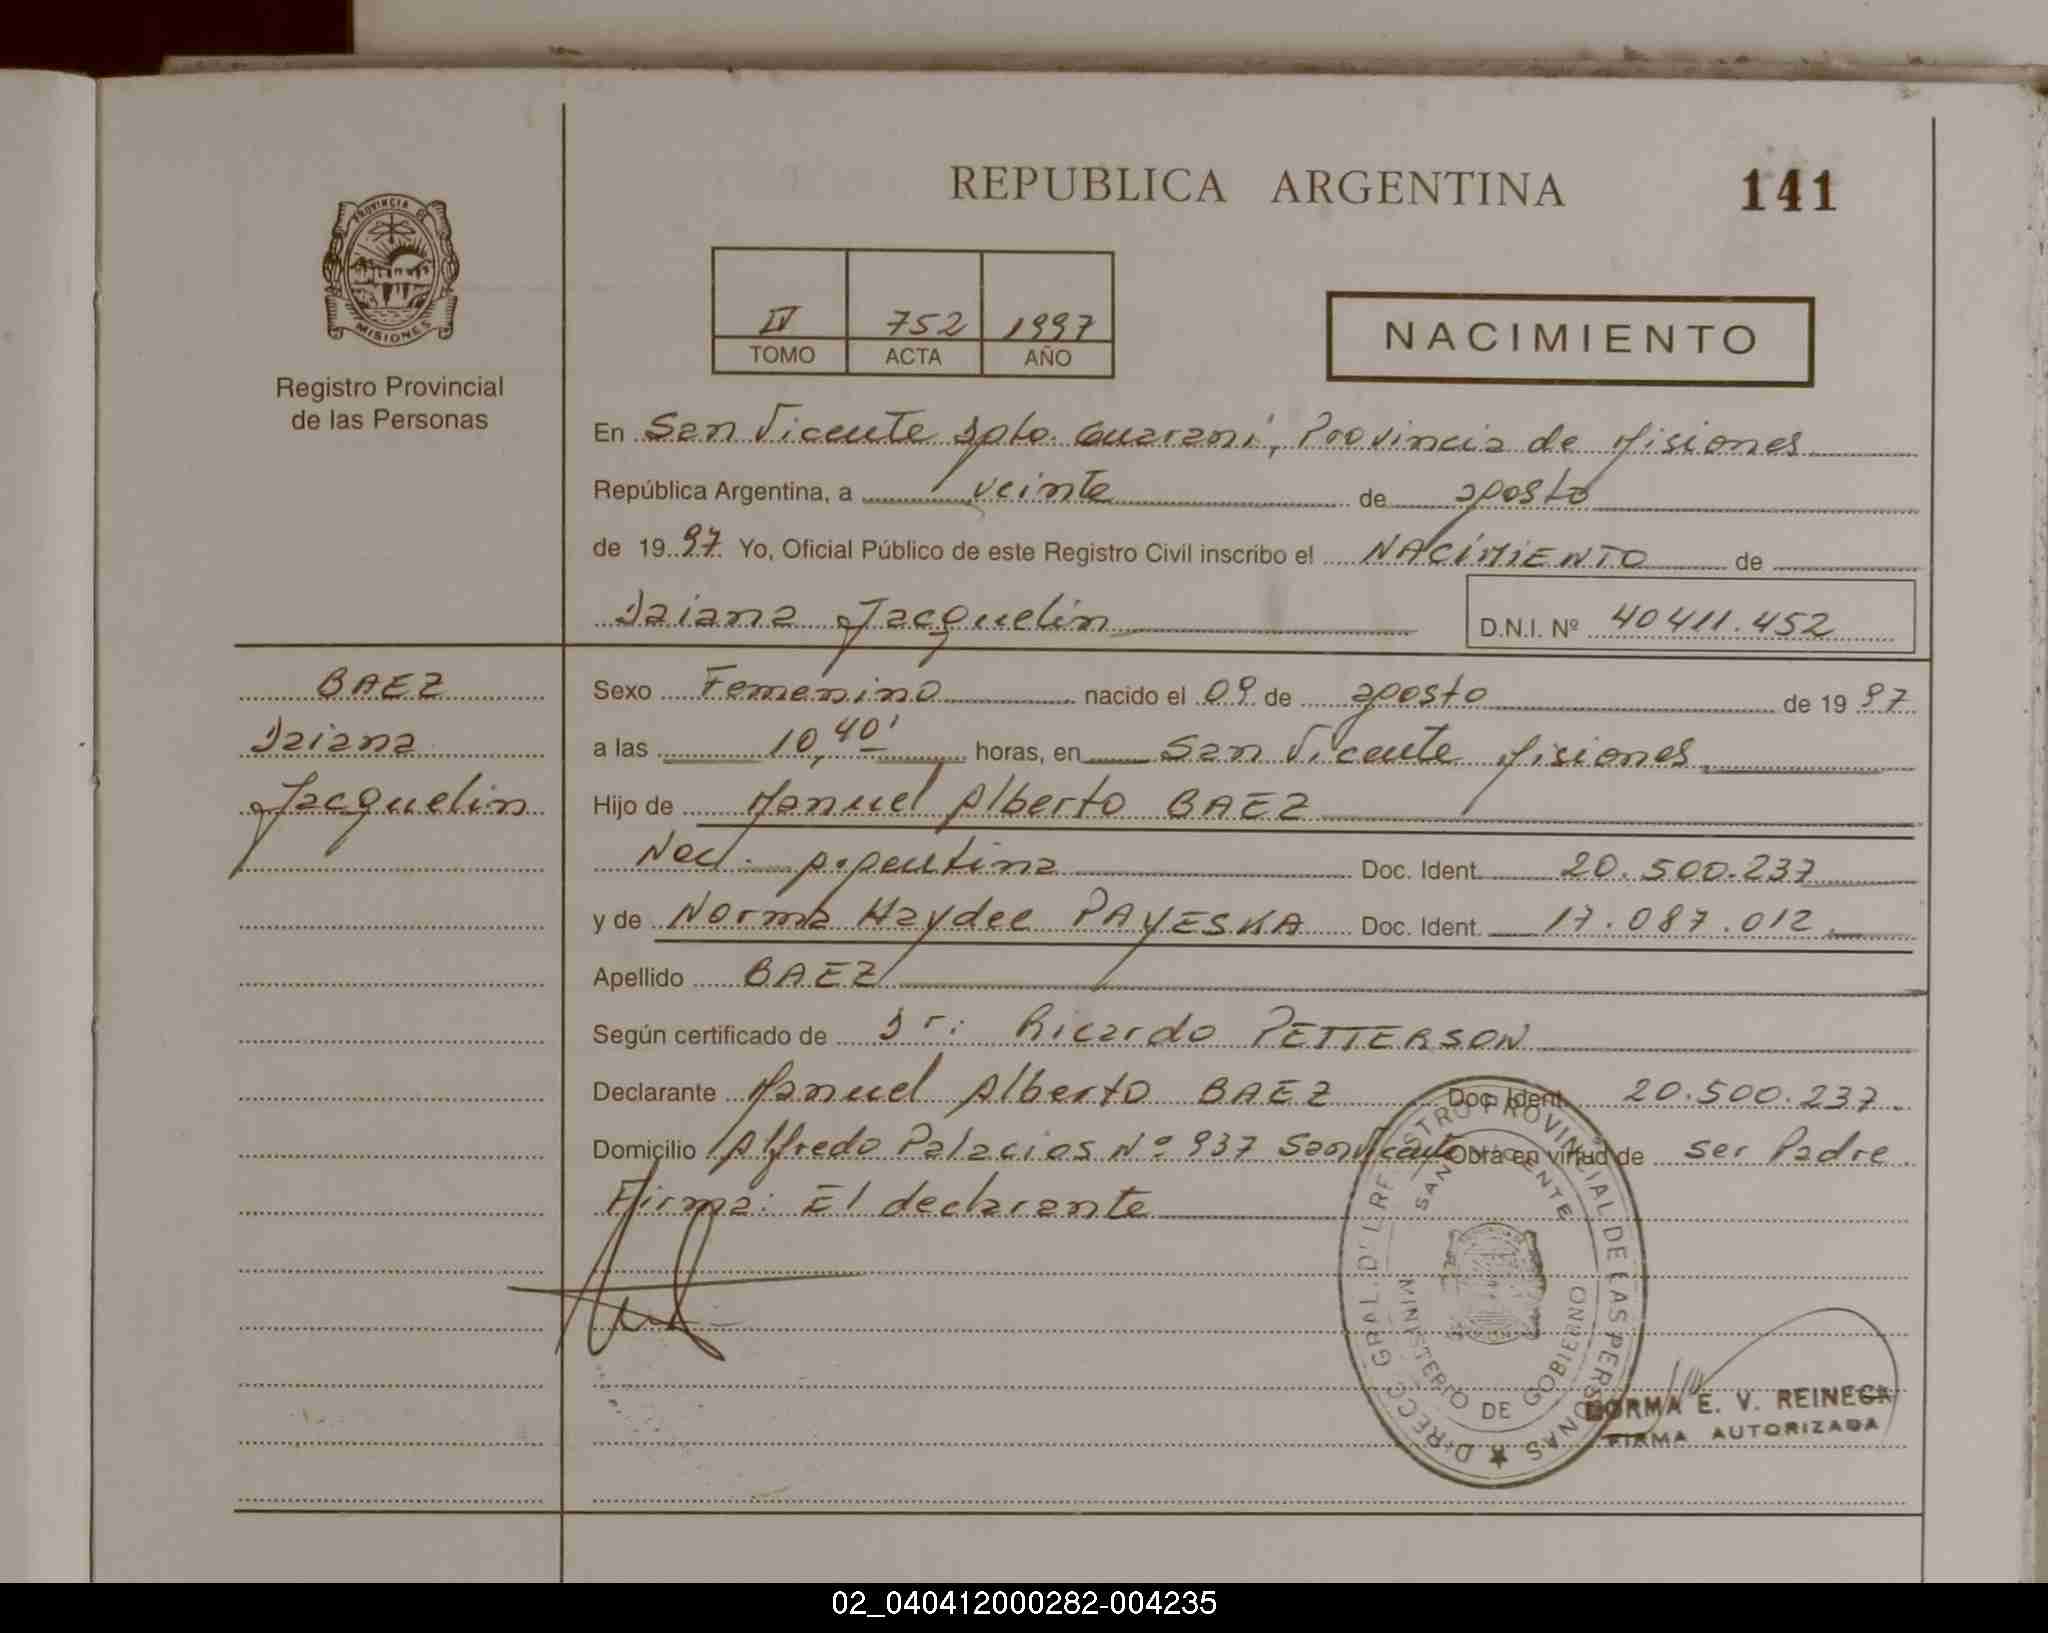 REPUBLICA ARGENTINA
141
PROVINCIA DE
MISIONES
Registro Provincial
de las Personas
IV 752 1997
TOMO ACTA AÑO
NACIMIENTO
En San Vicente Dpto. Guaraní, Provincia de Misiones
República Argentina, a veinte de agosto
de 1997 Yo, Oficial Público de este Registro Civil inscribo el NACIMIENTO de
Daiana Jacquelin
D.N.I. Nº 40411.452
BAEZ
Daiana
Jacquelin
Sexo Femenino nacido el 09 de agosto de 1997
a las 10,40' horas, en San Vicente Misiones
Hijo de Manuel Alberto BAEZ
Nac. Argentina Doc. Ident. 20.500.237
y de Norma Haydee PAYESKA Doc. Ident. 17.087.012
Apellido BAEZ
Según certificado de Dr: Ricardo PETTERSON
Declarante Manuel Alberto BAEZ Doc. Ident. 20.500.237.
Domicilio Alfredo Palacios Nº 937 San Vicente Obra en virtud de ser Padre
Firma: El declarante
DIRECC. GRAL. D' L REGISTRO PROVINCIAL DE LAS PERSONAS
SAN VICENTE
MINISTERIO DE GOBIERNO
NORMA E. V. REINECK
FIRMA AUTORIZADA
02_040412000282-004235